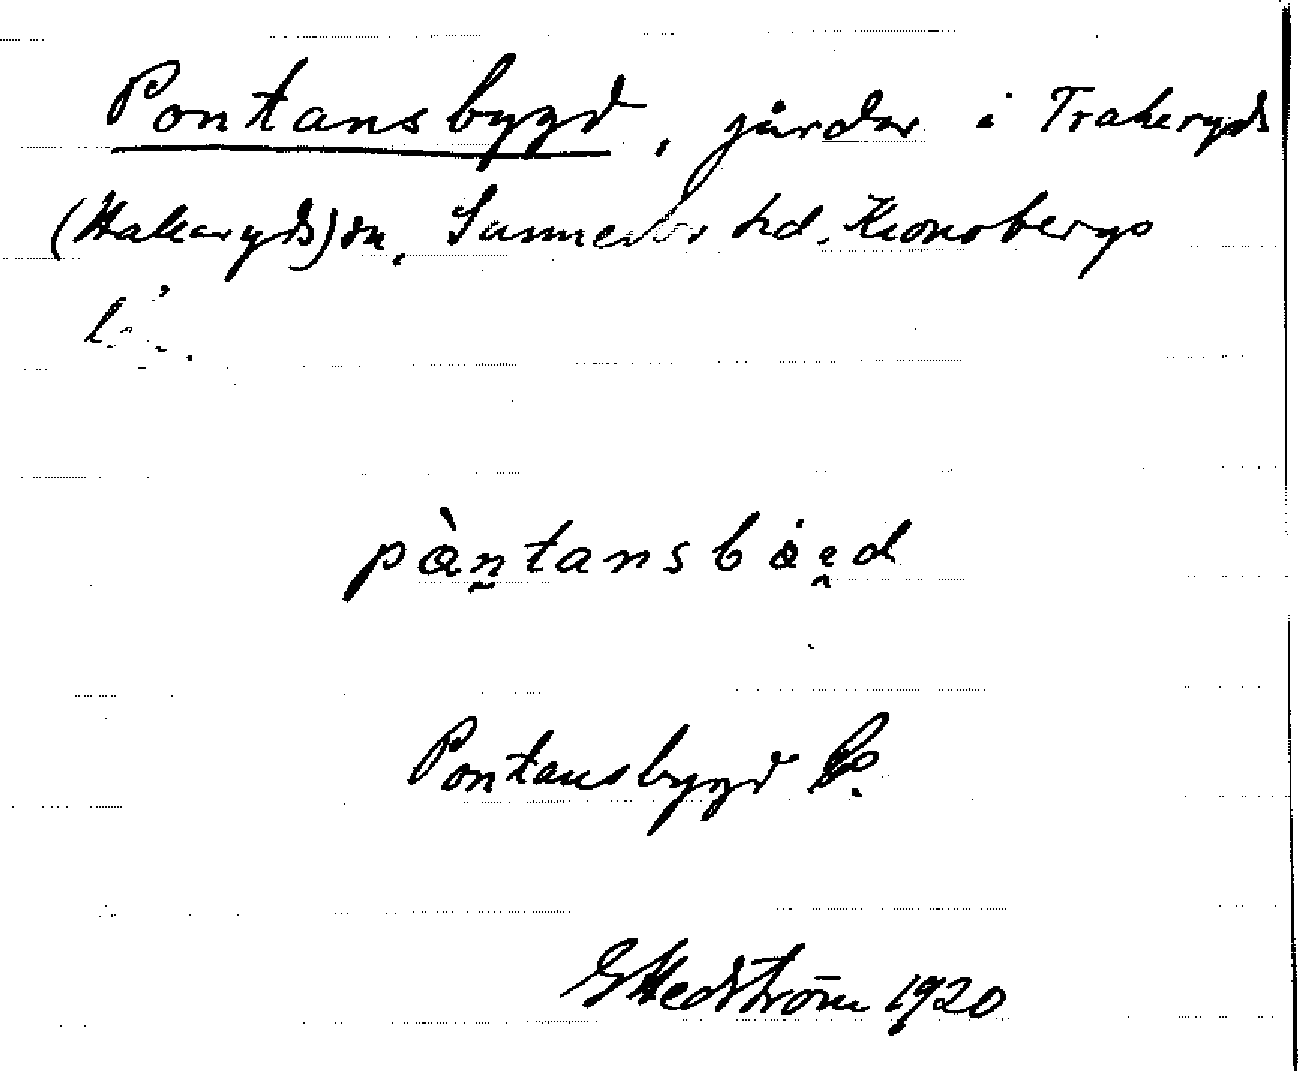 Pontansbygd, gårdar i Trakeryds
(Hakaryds) sn, Sunnerbo hd. Kronobergs
län.
pàntansbåed
Pontansbygd Ps.
G Hedström 1920